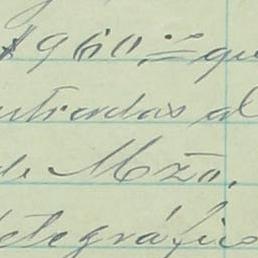 $960.= que
ntradas al
de Mzo.
telegráfico